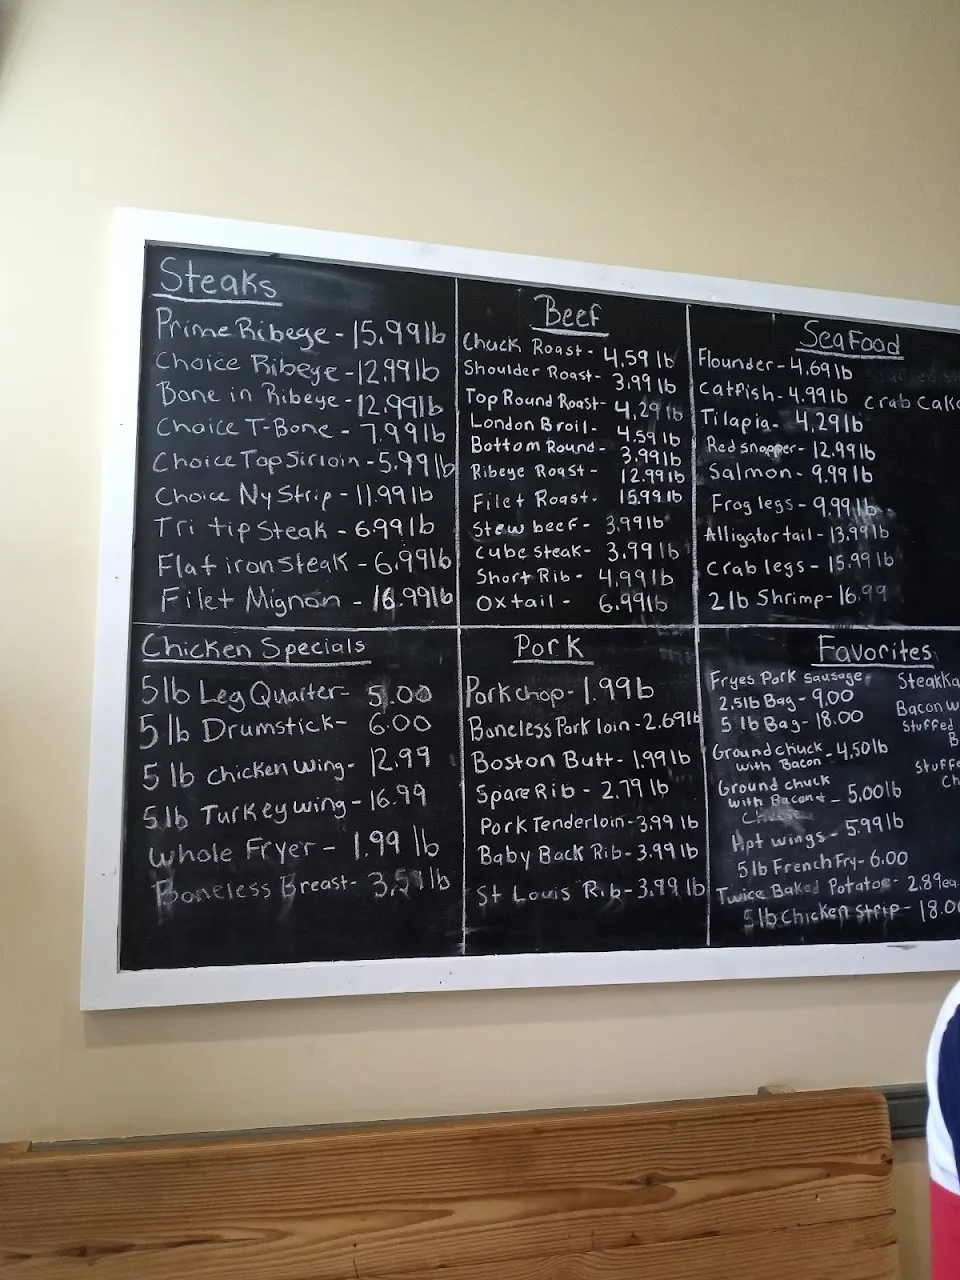 Steaks
Prime Ribeye - 15.99 lb
Choice Ribeye - 12.99 lb
Bone in Ribeye - 12.99 lb
Choice T-Bone - 7.99 lb
Choice Top Sirloin - 5.99 lb
Choice Ny Strip - 11.99 lb
Tri tip Steak - 6.99 lb
Flat iron Steak - 6.99 lb
Filet Mignon - 16.99 lb
Beef
Chuck Roast - 4.59 lb
Shoulder Roast - 3.99 lb
Top Round Roast - 4.29 lb
London Broil - 4.59 lb
Bottom Round - 3.99 lb
Ribeye Roast - 12.99 lb
Filet Roast - 15.99 lb
Stew beef - 3.99 lb
Cube steak - 3.99 lb
Short Rib - 4.99 lb
Oxtail - 6.99 lb
Sea Food
Flounder - 4.69 lb
Catfish - 4.99 lb
Crab Cake
Tilapia - 4.29 lb
Red snapper - 12.99 lb
Salmon - 9.99 lb
Frog legs - 9.99 lb
Alligator tail - 13.99 lb
Crab legs - 15.99 lb
2 lb Shrimp - 16.99
Chicken Specials
5 lb Leg Quarter - 5.00
5 lb Drumstick - 6.00
5 lb chicken wing - 12.99
5 lb Turkey wing - 16.99
Whole Fryer - 1.99 lb
Boneless Breast - 3.59 lb
Pork
Pork chop - 1.99 lb
Boneless Pork loin - 2.69 lb
Boston Butt - 1.99 lb
Spare Rib - 2.79 lb
Pork Tenderloin - 3.99 lb
Baby Back Rib - 3.99 lb
St Louis Rib - 3.99 lb
Favorites
Fryes Pork Sausage
2.5 lb Bag - 9.00
5 lb Bag - 18.00
Ground chuck
with Bacon - 4.50 lb
Ground chuck
with Bacon + - 5.00 lb
Cheese
Hot wings - 5.99 lb
5 lb French Fry - 6.00
Twice Baked Potatoe - 2.89 ea.
5 lb Chicken Strip - 18.00
Bacon w
Stuffed